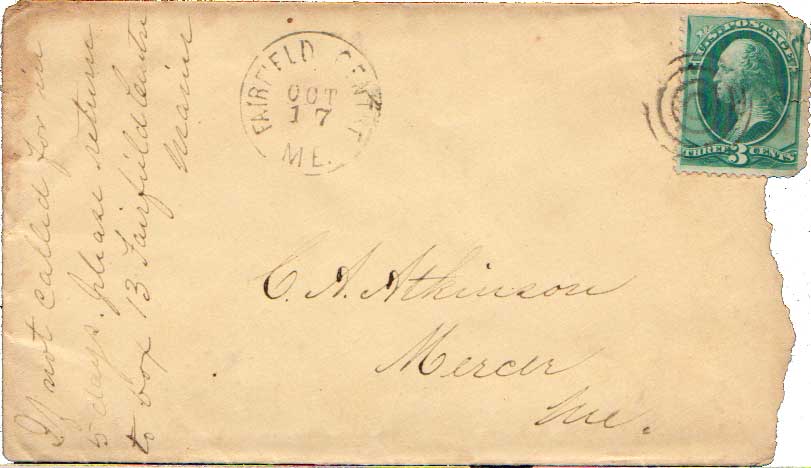 If not called for in
5 days. please return
to box 13 Fairfield Centre
Maine
FAIRFIELD CENTRE
OCT
17
ME.
U.S. POSTAGE
THREE 3 CENTS
C. A. Atkinson
Mercer
Me.